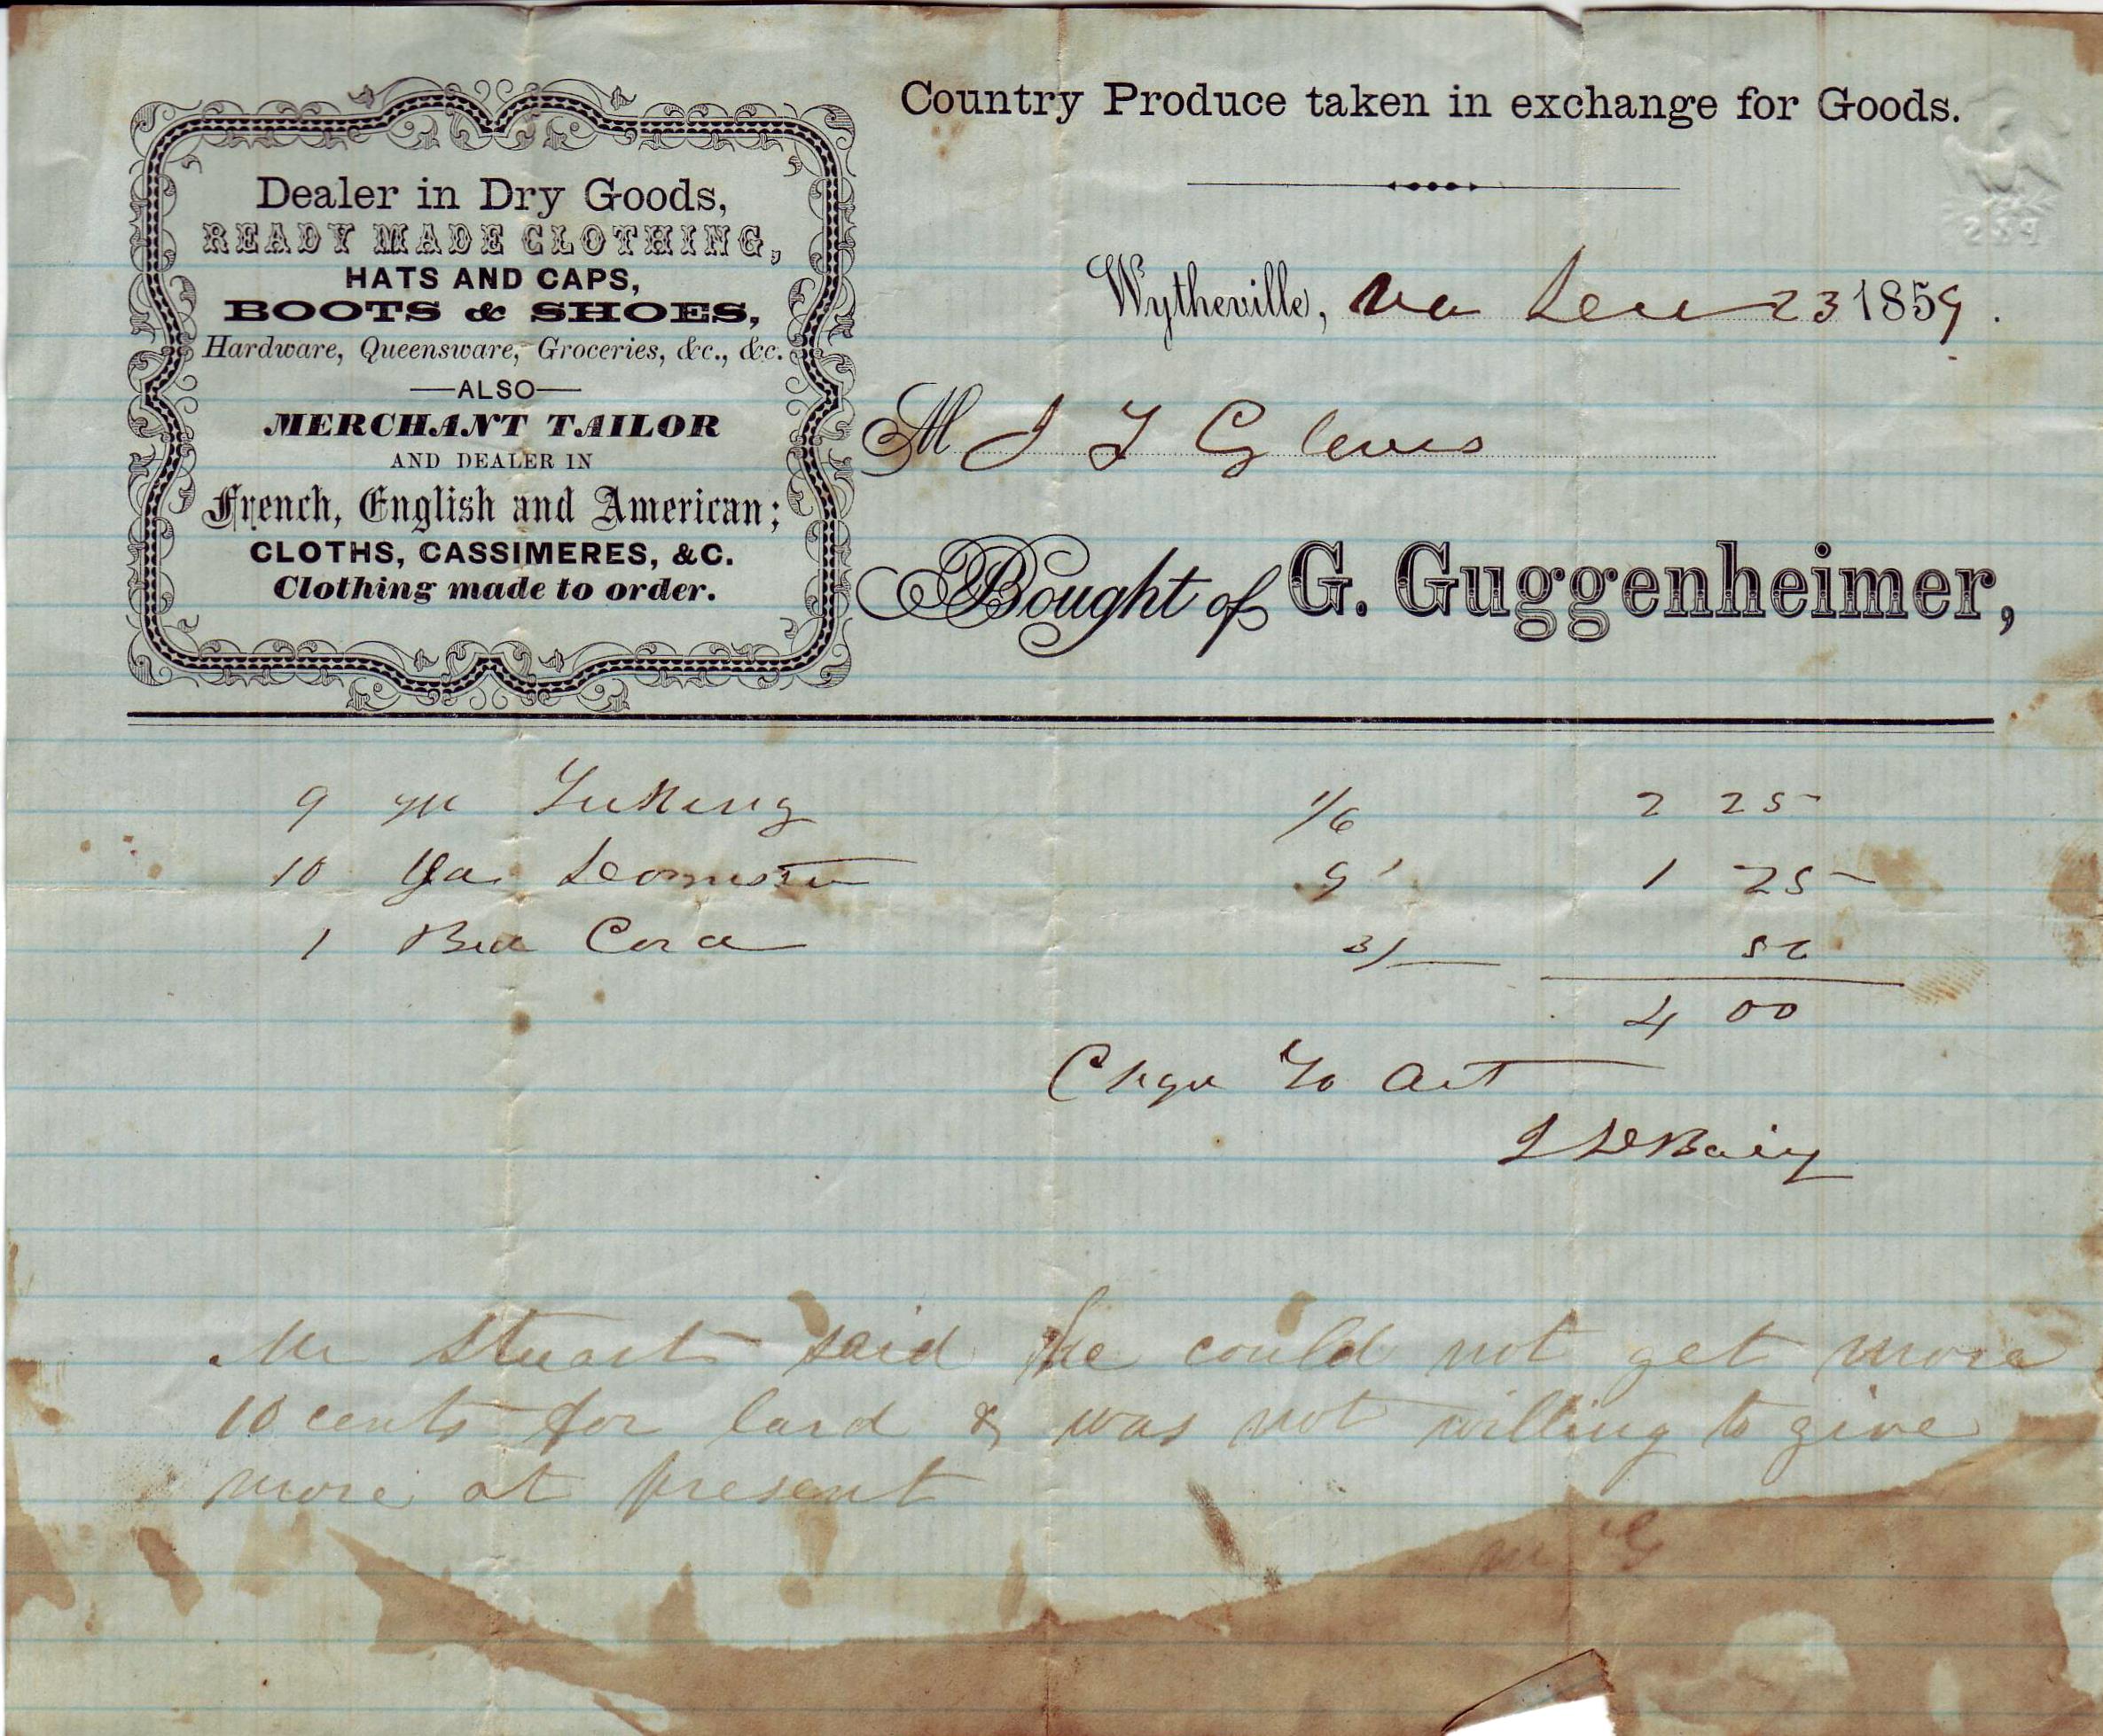 Country Produce taken in exchange for Goods.
Dealer in Dry Goods,
READY MADE CLOTHING,
HATS AND CAPS,
BOOTS & SHOES,
Hardware, Queensware, Groceries, &c., &c.
—ALSO—
MERCHANT TAILOR
AND DEALER IN
French, English and American;
CLOTHS, CASSIMERES, &C.
Clothing made to order.
Wytheville, Va 23 1859.
M J T Gleves
Bought of G. Guggenheimer,
9 1/6 2 25
10 9 1 25
1 Bed Cord 3/ 50
4 00
Chge To Act
Mr Stuart said he could not get more
10 cents for lard & was not willing to give
more at present
M G